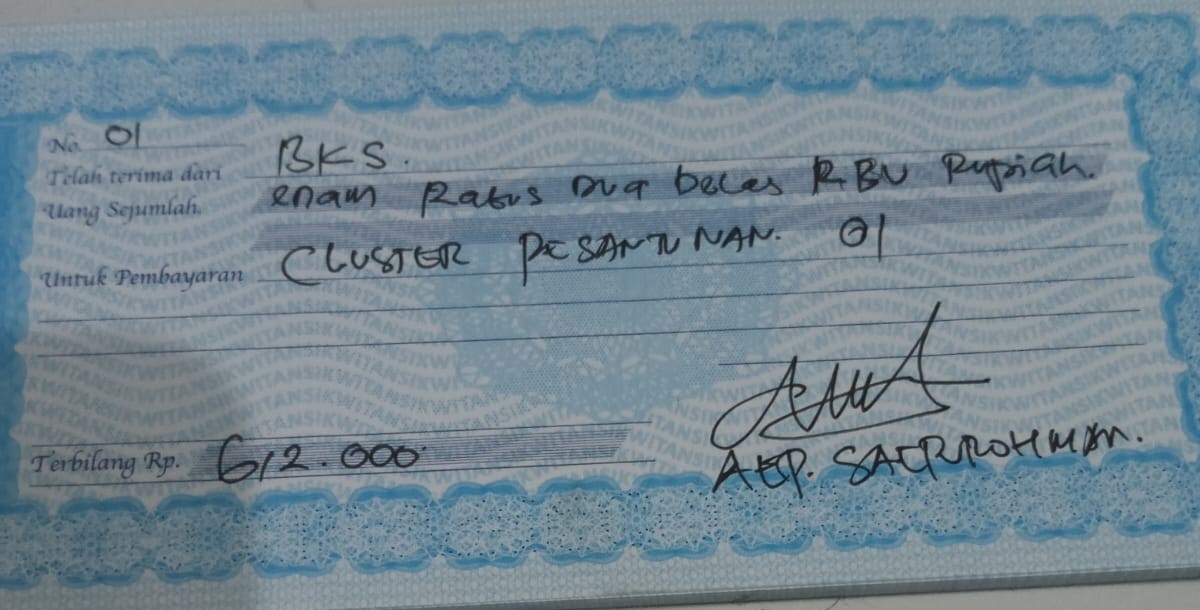 No. 01
Telah terima dari BKS.
Uang Sejumlah. enam Ratus Dua belas RBU Rupiah.
Untuk Pembayaran CLUSTER PESANTUNAN. 01
Terbilang Rp. 612.000
AEP. SAEPRROHMAN.